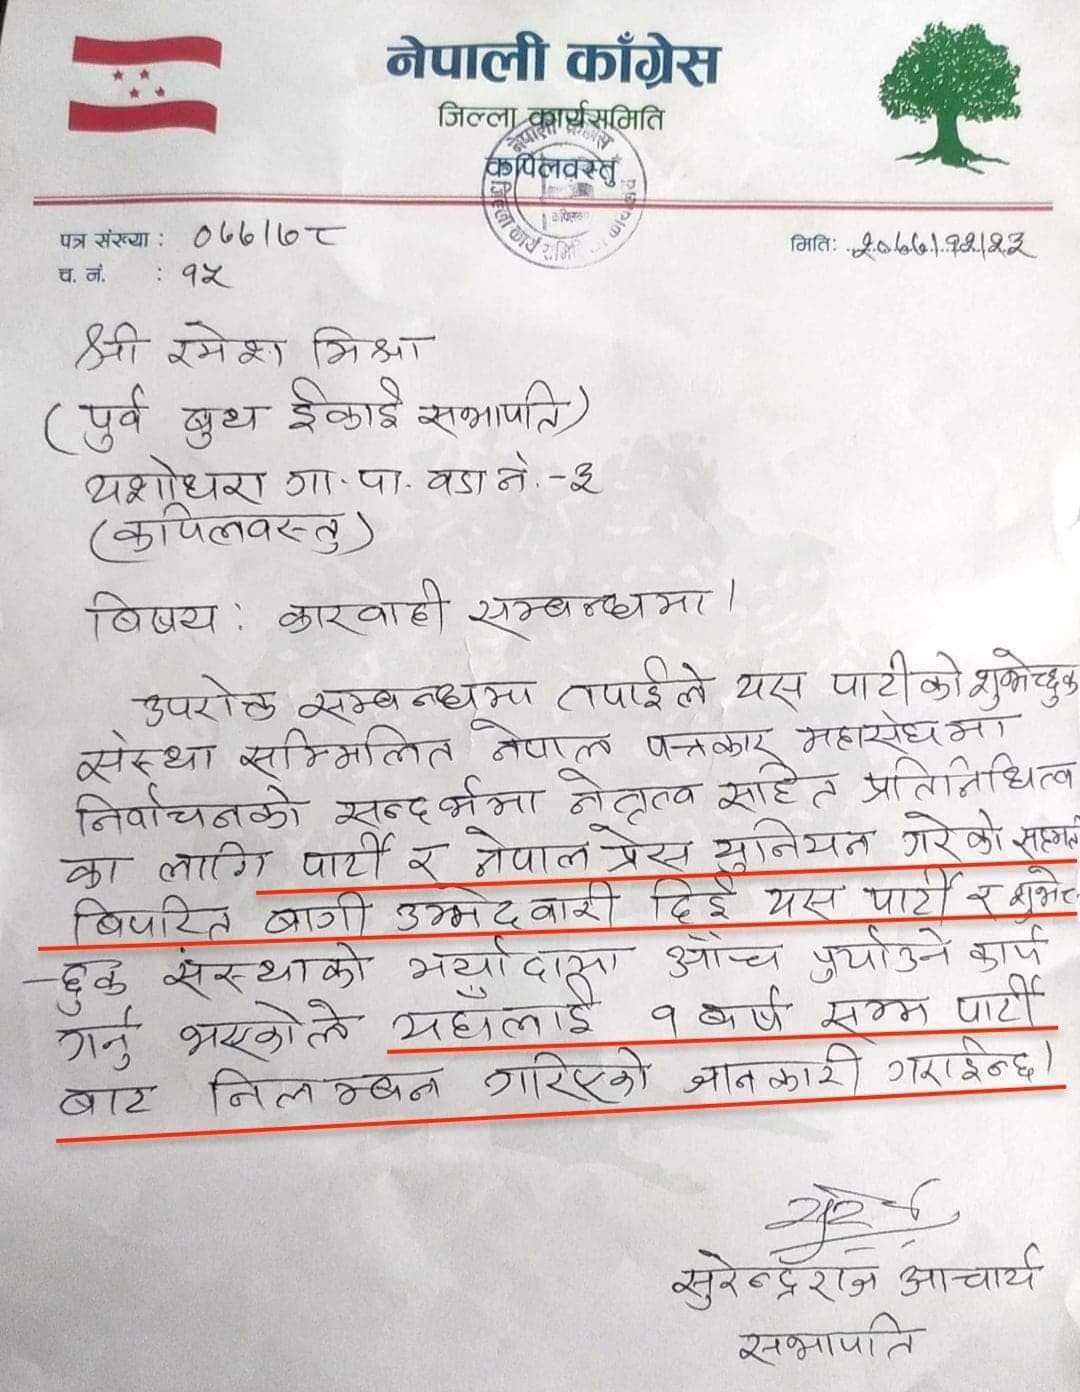 नेपाली काँग्रेस
जिल्ला कार्यसमिति
कपिलवस्तु
नेपाली काँग्रेस
जिल्ला कार्य समिति
पत्र संख्या : ०७७/७८
मिति: २०७७/१२/२३
च. नं. : १५
श्री रमेश मिश्रा
(पुर्व बुथ ईकाई सभापति)
यशोधरा गा.पा. वडा नं.-३
(कपिलवस्तु)
विषय : कारवाही सम्बन्धमा।
उपरोक्त सम्बन्धमा तपाईले यस पार्टीको शुभेच्छुक
संस्था सम्मिलित नेपाल पत्रकार महासंघमा
निर्वाचनको सन्दर्भमा नेतृत्व सहित प्रतिनिधित्व
का लागि पार्टी र नेपाल प्रेस युनियन गरेको सहमति
बिपरित बागी उम्मेदवारी दिई यस पार्टी र शुभेच्
-छुक संस्थाको मर्यादामा आँच पुर्याउने कार्य
गर्नु भएकोले यहाँलाई १ बर्ष सम्म पार्टी
बाट निलम्बन गरिएको जानकारी गराईन्छ।
सुरेन्द्रराज आचार्य
सभापति